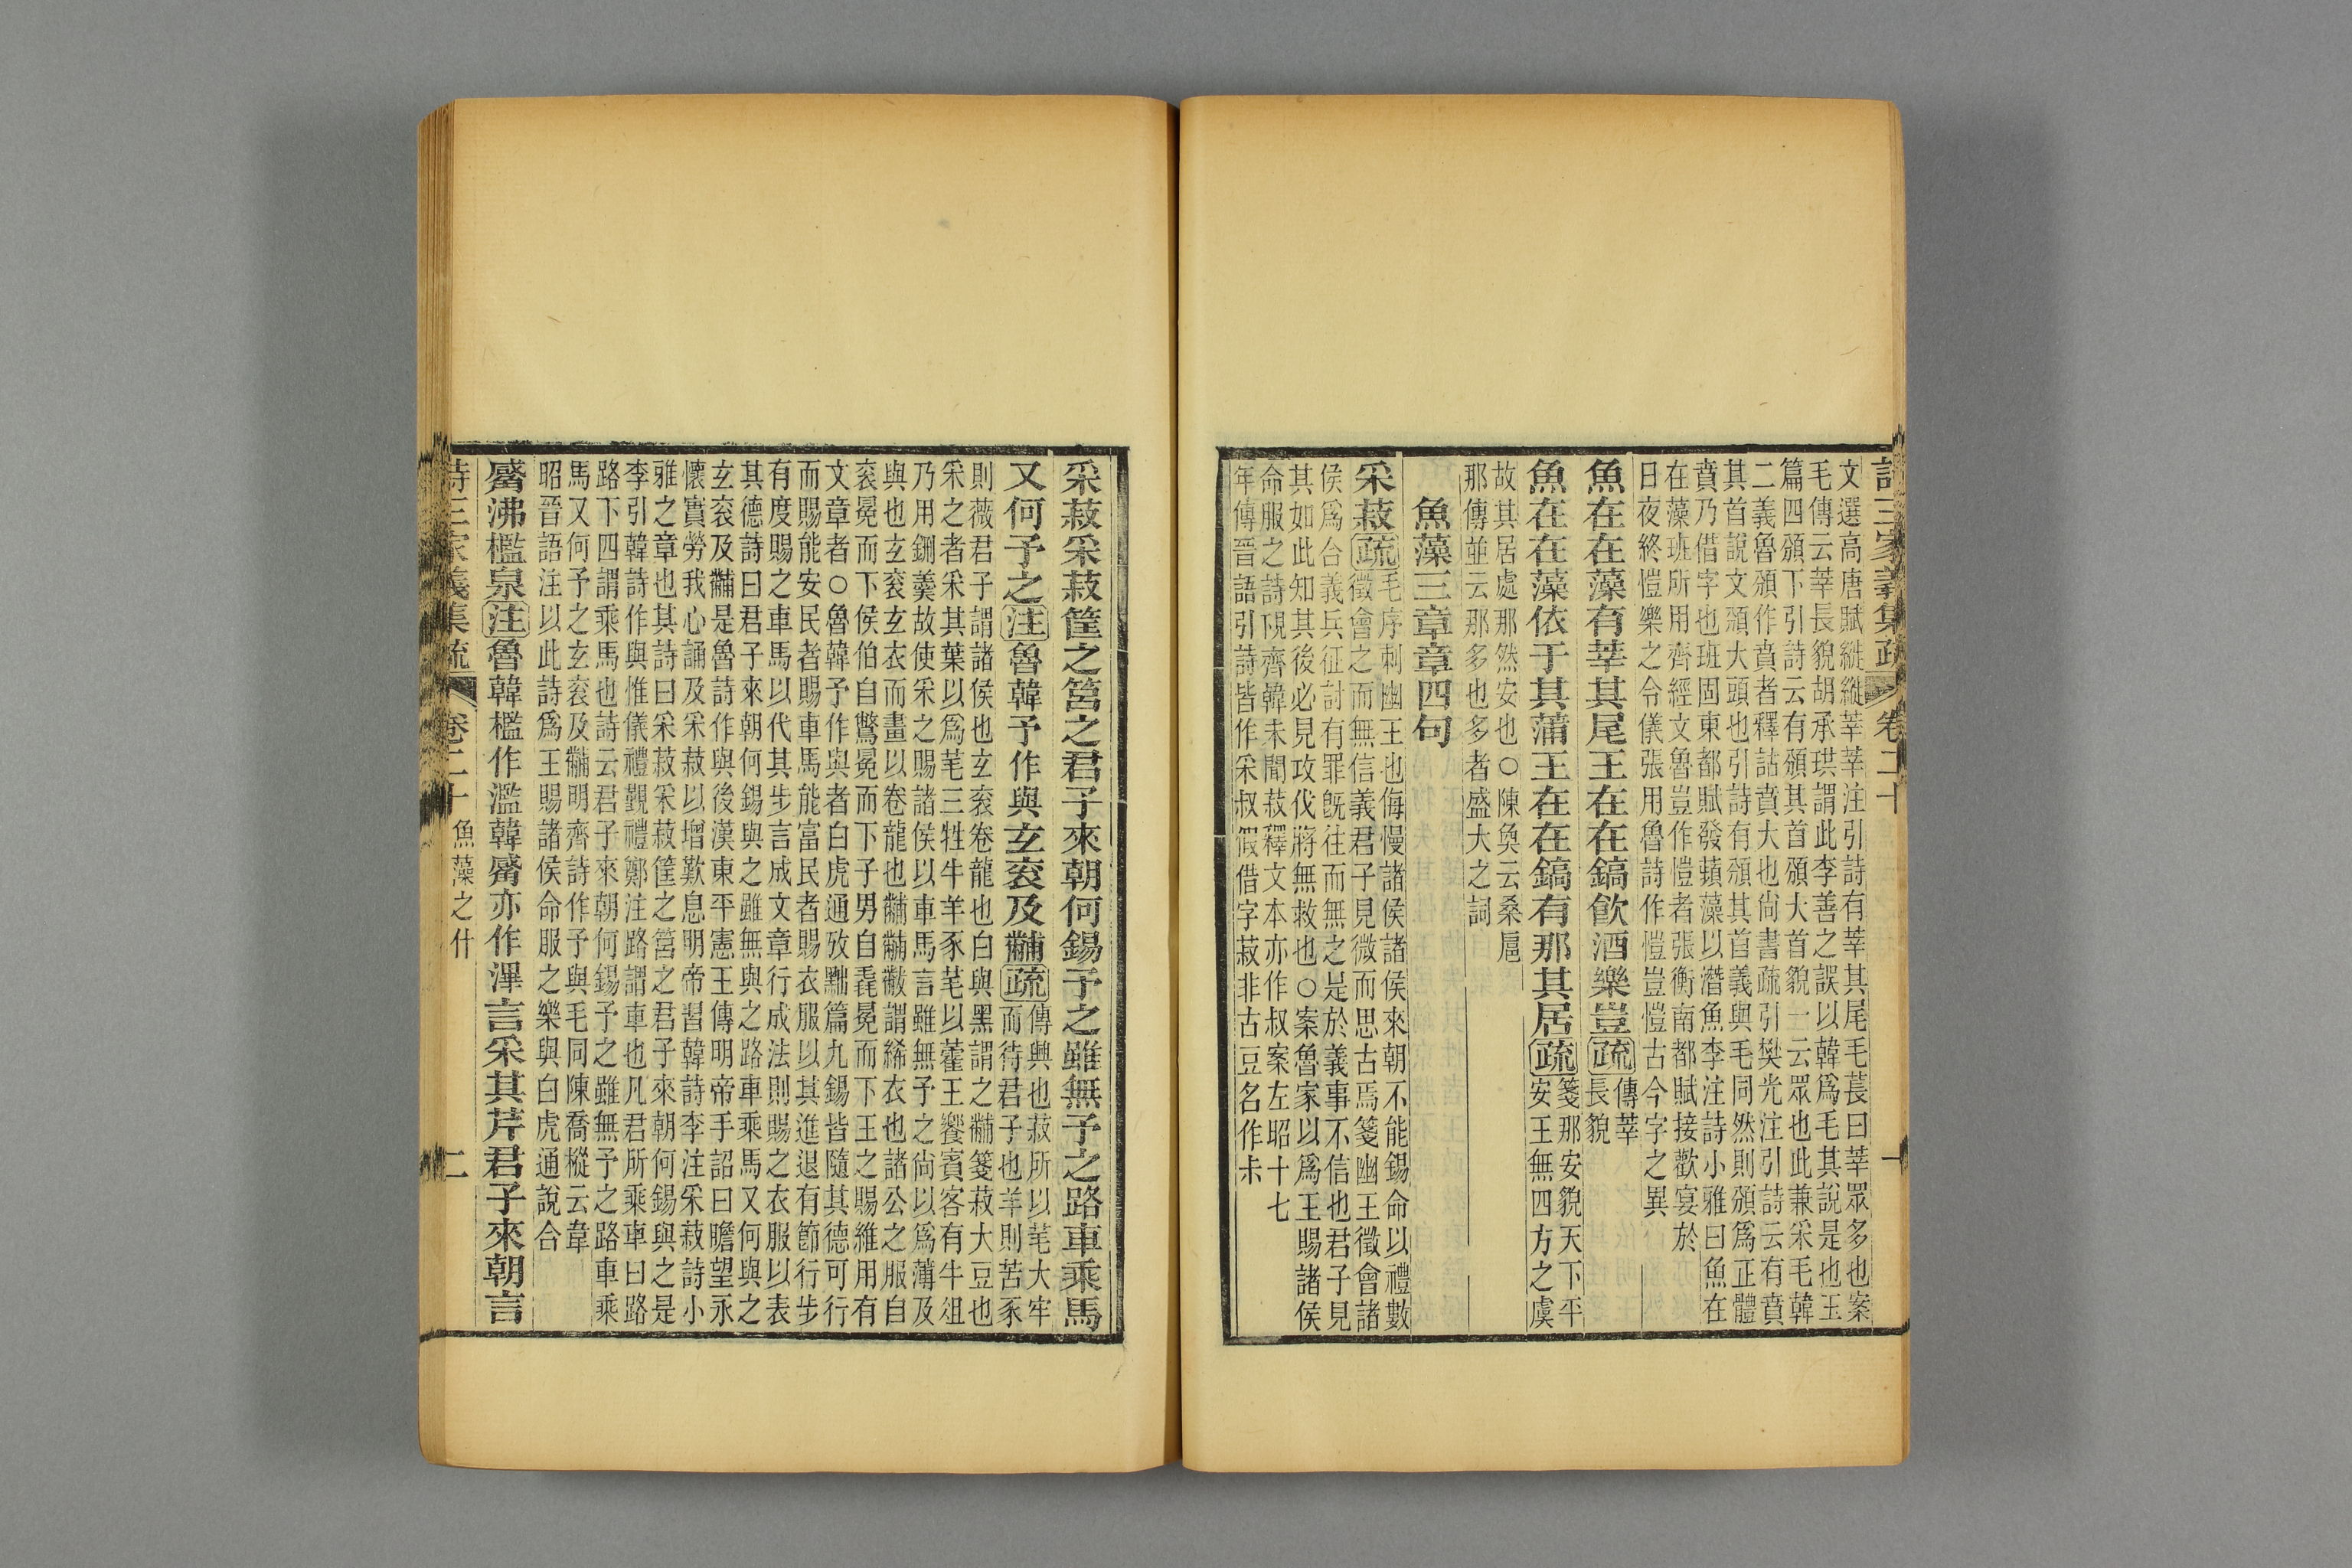 詩三家義集疏 卷二十 一
文選高唐賦縰縰莘莘注引詩有莘其尾毛萇曰莘眾多也案
毛傳云莘長貌胡承珙謂此李善之誤以韓爲毛其說是也玉
篇四頒下引詩云有頒其首頒大首貌一云眾也此兼采毛韓
二義魯頒作賁者釋詁賁大也尚書疏引樊光注引詩云有賁
其首說文頒大頭也引詩有頒其首義與毛同然則頒爲正體
賁乃借字也班固東都賦發蘋藻以潛魚李注詩小雅曰魚在
在藻班所用齊經文魯豈作愷者張衡南都賦接歡宴於
日夜終愷樂之令儀張用魯詩作愷豈愷古今字之異
魚在在藻有莘其尾王在在鎬飲酒樂豈疏傳莘
長貌
魚在在藻依于其蒲王在在鎬有那其居疏箋那安貌天下平
安王無四方之虞
故其居處那然安也○陳奐云桑扈
那傳並云那多也多者盛大之詞
魚藻三章章四句
采菽疏毛序刺幽王也侮慢諸侯諸侯來朝不能錫命以禮數
徵會之而無信義君子見微而思古焉箋幽王徵會諸
侯爲合義兵征討有罪旣往而無之是於義事不信也君子見
其如此知其後必見攻伐將無救也○案魯家以爲王賜諸侯
命服之詩閱齊韓未聞菽釋文本亦作叔案左昭十七
年傳晉語引詩皆作采叔假借字菽非古豆名作尗
采菽采菽筐之筥之君子來朝何錫予之雖無予之路車乘馬
又何予之注魯韓予作與玄袞及黼疏傳興也菽所以芼大牢
而待君子也羊則苦豕
則薇君子謂諸侯也玄袞卷龍也白與黑謂之黼箋菽大豆也
采之者采其葉以爲芼三牲牛羊豕芼以藿王饗賓客有牛俎
乃用鉶羹故使采之賜諸侯以車馬言雖無予之尚以爲薄及
與也玄袞玄衣而畫以卷龍也黼黼黻謂絺衣也諸公之服自
袞冕而下侯伯自鷩冕而下子男自毳冕而下王之賜維用有
文章者○魯韓予作與者白虎通攷黜篇九錫皆隨其德可行
而賜能安民者賜車馬能富民者賜衣服以其進退有節行步
有度賜之車馬以代其步言成文章行成法則賜之衣服以表
其德詩曰君子來朝何錫與之雖無與之路車乘馬又何與之
玄袞及黼是魯詩作與後漢東平憲王傳明帝手詔曰瞻望永
懷實勞我心誦及采菽以增歎息明帝習韓詩李注采菽詩小
雅之章也其詩曰采菽采菽筐之筥之君子來朝何錫與之是
李引韓詩作與惟儀禮覲禮鄭注路謂車也凡君所乘車曰路
路下四謂乘馬也詩云君子來朝何錫予之雖無予之路車乘
馬又何予之玄袞及黼明齊詩作予與毛同陳喬樅云韋
昭晉語注以此詩爲王賜諸侯命服之樂與白虎通說合
觱沸檻泉注魯韓檻作濫韓觱亦作滭言采其芹君子來朝言
詩三家義集疏 卷二十 魚藻之什 二